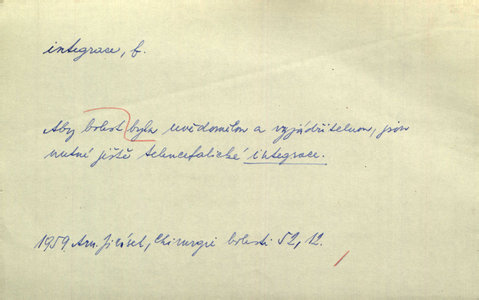 integrace, f.
Aby bolest byla uvědomělou a vyjádřitelnou, jsou
nutné jistě telencefalické integrace.
1959. Arn. Jirásek, Chirurgie bolesti 52, 12.